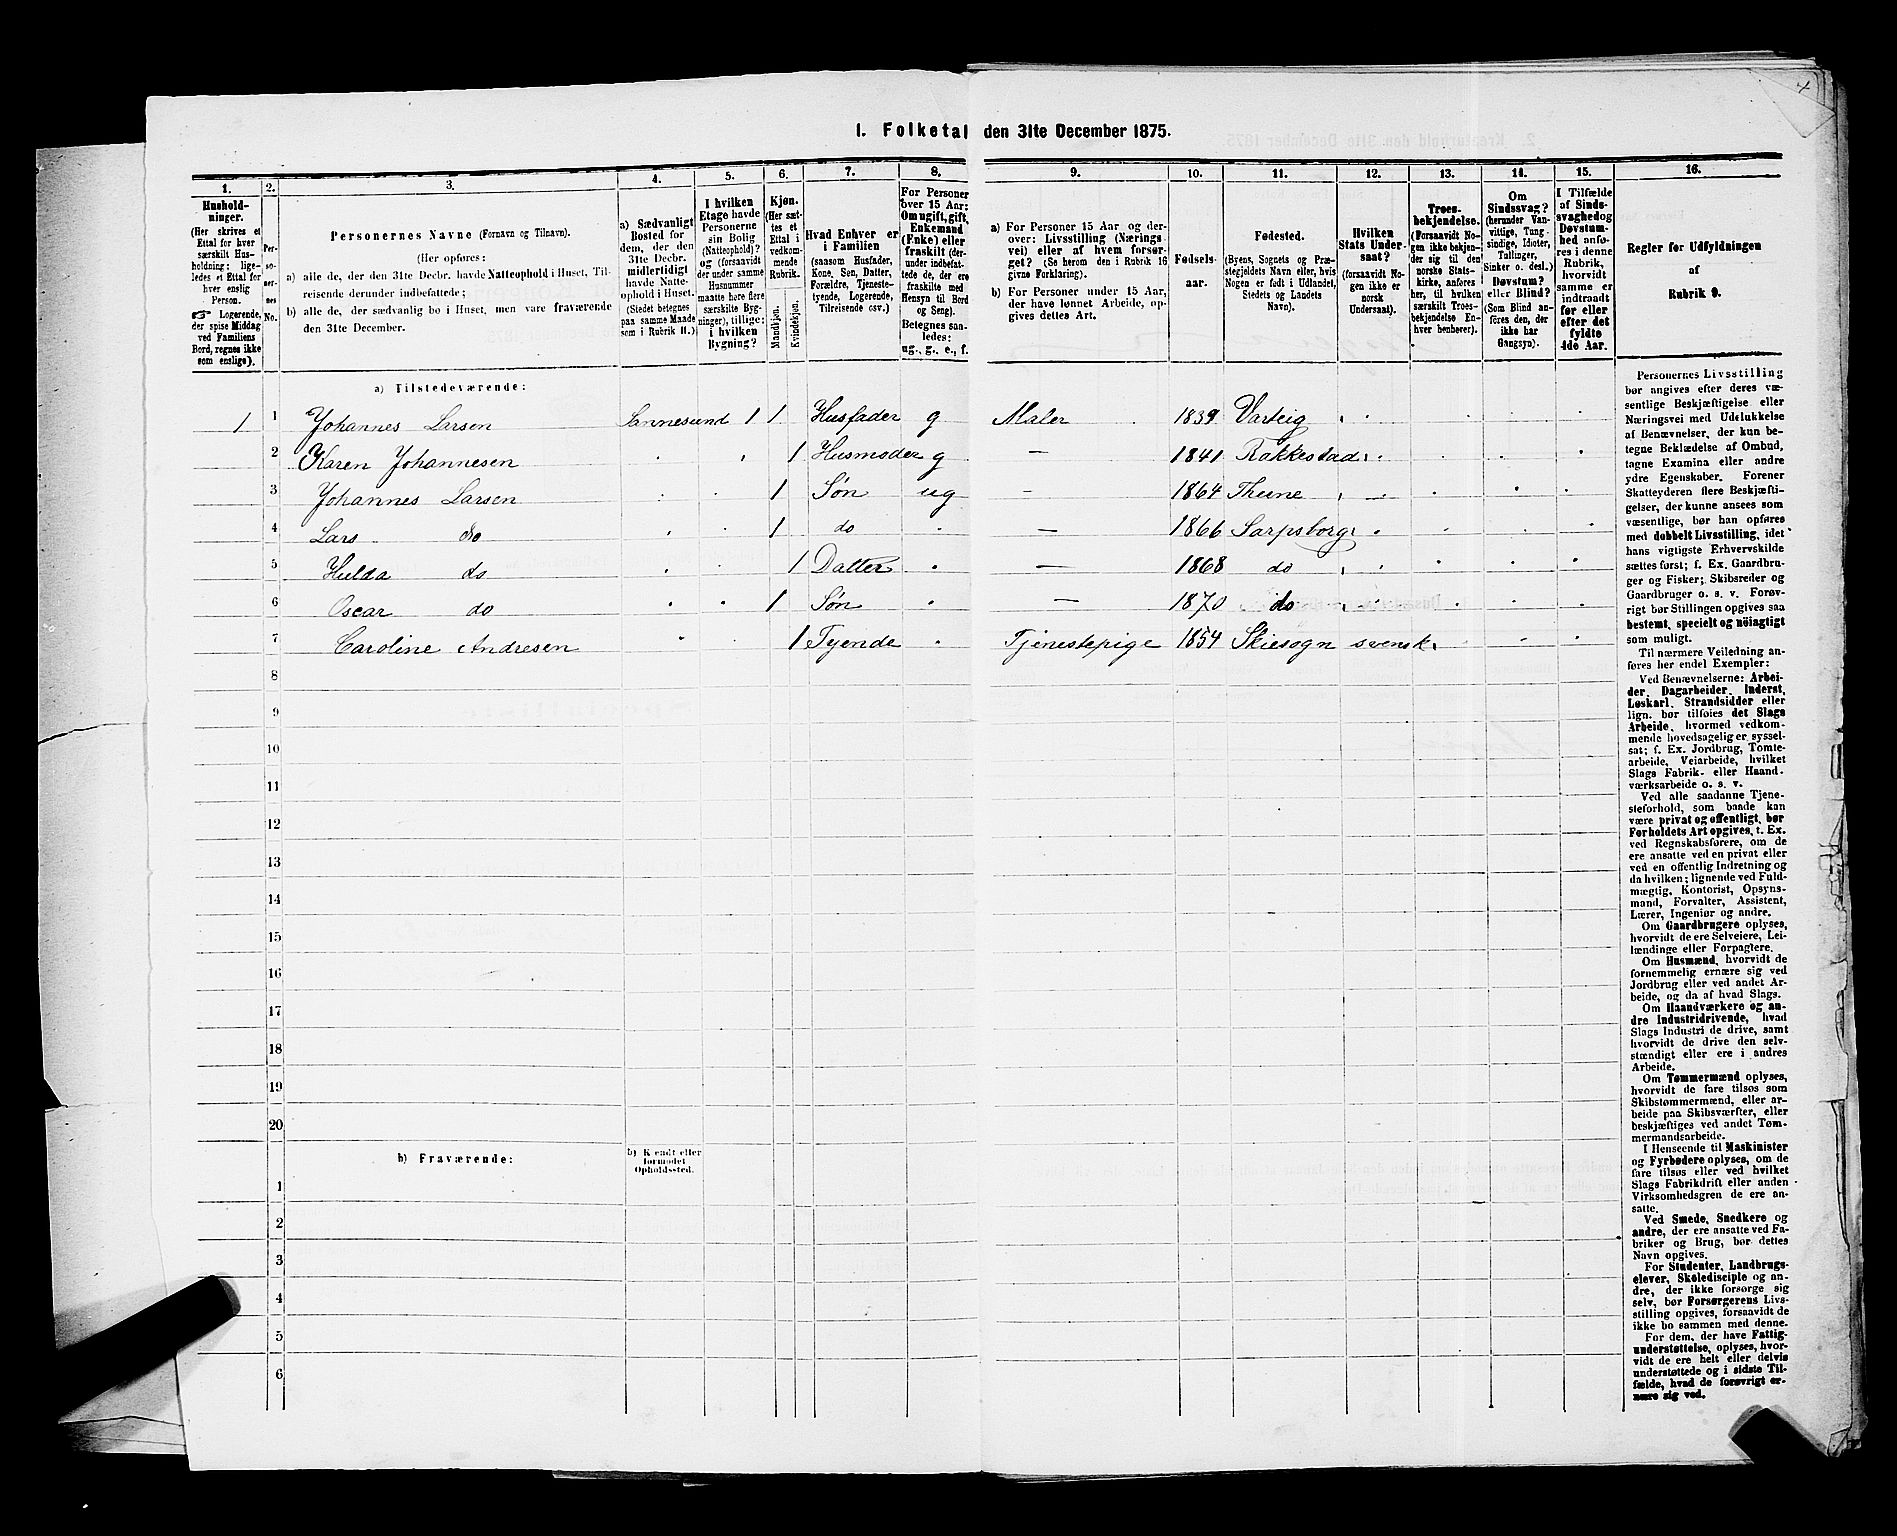 4
1. Folketal den 31te December 1875.
1.
2.
3.
4.
5.
6.
7.
8.
9.
10.
11.
12.
13.
14.
15.
16.
Hushold-
ninger.
(Her skrives et
Ettal for hver
særskilt Hus-
holdning; lige-
ledes et Ettal for
hver enslig
Person.
☞ Logerende,
der spise Middag
ved Familiens
Bord, regnes ikke
som enslige).
Per-
so-
ner-
nes
No.
Personernes Navne (Fornavn og Tilnavn).
(Her opføres:
a) alle de, der den 31te Decbr. havde Natteophold i Huset, Til-
reisende derunder indbefattede;
b) alle de, der sædvanlig bo i Huset, men vare fraværende
den 31te December.
a) Sædvanligt
Bosted for
dem, der den
31te Decbr.
midlertidigt
havde Natte-
ophold i Huset.
(Stedet betegnes
paa samme Maade
som i Rubrik 11.)
I hvilken
Etage havde
Personerne
sin Bolig
(Natteophold)?
og (forsaavidt
der under samme
Husnummer
maatte høre flere
særskilte Byg-
ninger), tillige:
i hvilken
Bygning?
Kjøn.
(Her sæt-
tes et
Ettal i
vedkom-
mende
Rubrik.
Mandkjøn.
Kvindekjøn.
Hvad Enhver er
i Familien
(saasom Husfader,
Kone, Søn, Datter,
Forældre, Tjeneste-
tyende, Logerende,
Tilreisende osv.)
For Personer
over 15 Aar:
Om ugift, gift,
Enkemand
(Enke) eller
fraskilt (der-
under indbefat-
tede de, der ere
fraskilte med
Hensyn til Bord
og Seng).
Betegnes saa-
ledes:
ug., g., e., f.
a) For Personer 15 Aar og der-
over: Livsstilling (Nærings-
vei) eller af hvem forsør-
get? (Se herom den i Rubrik 16
givne Forklaring).
b) For Personer under 15 Aar,
der have lønnet Arbeide, op-
gives dettes Art.
Fødsels-
aar.
Fødested.
(Byens, Sognets og Præ-
stegjeldets Navn eller, hvis
Nogen er født i Udlandet,
Stedets og Landets
Navn).
Hvilken
Stats Under-
saat?
(forsaavidt No-
gen ikke er
norsk
Undersaat).
Troes-
bekjendelse.
(Forsaavidt No-
gen ikke bekjen-
der sig til den
norske Stats-
kirke, anføres
her, til hvilken
særskilt Troes-
bekjendelse En-
hver henhører).
Om
Sindssvag?
(herunder Van-
vittige, Tung-
sindige, Idioter,
Tullinger,
Sinker o. desl.)
Døvstum?
eller Blind?
(Som Blind an-
føres den, der
ikke har
Gangsyn).
I Tilfælde
af Sinds-
svaghed og
Døvstum-
hed anfø-
res i denne
Rubrik,
hvorvidt
samme er
indtraadt
før eller
efter det
fyldte
4de Aar.
Regler for Udfyldningen
af
Rubrik 9.
a) Tilstedeværende:
1 1 Johannes Larsen Sannesund 1 1 Husfader g Maler 1839 Varteig
2 Karen Johannesen 1 Husmoder g — 1841 Rakkestad
3 Johannes Larsen 1 Søn ug — 1864 Thune
4 Lars do 1 do — 1866 Sarpsborg
5 Hulda do 1 Datter — 1868 do
6 Oscar do 1 Søn — 1870 do
7 Caroline Andresen 1 Tyende Tjenestepige 1854 Skiesogn svensk
8
9
10
11
12
13
14
15
16
17
18
19
20
b) Fraværende:
b) Kjendt eller
formodet
Opholdssted.
1
2
3
4
5
6
Personernes Livsstilling
bør angives efter deres væ-
sentlige Beskjæftigelse eller
Næringsvei med Udelukkelse
af Benævnelser, der kun be-
tegne Beklædelse af Ombud,
tagne Examina eller andre
ydre Egenskaber. Forener
Skatteyderen flere Beskjæfti-
gelser, der kunne ansees som
væsentlige, bør han opføres
med dobbelt Livsstilling, idet
hans vigtigste Erhvervskilde
sættes først; f. Ex. Gaardbru-
ger og Fisker; Skibsreder og
Gaardbruger o. s. v. Forøv-
rigt bør Stillingen opgives saa
bestemt, specielt og nöiagtigt
som muligt.
Til nærmere Veiledning an-
føres her endel Exempler:
Ved Benævnelserne: Arbei-
der, Dagarbeider, Inderst,
Løskarl, Strandsidder eller
lign. bør tilføies det Slags
Arbeide, hvormed vedkom-
mende hovedsagelig er syssel-
sat; f. Ex. Jordbrug, Tomte-
arbeide, Veiarbeide, hvilket
Slags Fabrik- eller Haand-
værksarbeide o. s. v.
Ved alle saadanne Tjene-
steforhold, som baade kan
være privat og offentligt, bør
Forholdets Art opgives, t. Ex.
ved Regnskabsførere, om de
ere ansatte ved en privat eller
ved en offentlig Indretning og
da hvilken; lignende ved Fuld-
mægtig, Kontorist, Opsyns-
mand, Forvalter, Assistent,
Lærer, Ingeniør og andre.
Om Gaardbrugere oplyses,
hvorvidt de ere Selveiere, Lei-
lændinge eller Forpagtere.
Om Husmænd, hvorvidt de
fornemmelig ernære sig ved
Jordbrug eller ved andet Ar-
beide, og da af hvad Slags.
Om Haandværkere og an-
dre Industridrivende, hvad
Slags Industri de drive, samt
hvorvidt de drive den selv-
stændigt eller ere i andres
Arbeide.
Om Tømmermænd oplyses,
hvorvidt de fare tilsøs som
Skibstømmermænd, eller ar-
beide paa Skibsværfter, eller
beskjæftiges ved andet Tøm-
mermandsarbeide.
I Henseende til Maskinister
og Fyrbødere oplyses, om de
fare tilsøs eller ved hvilket
Slags Fabrikdrift eller anden
Virksomhedsgren de ere an-
satte.
Ved Smede, Snedkere og
andre, der ere ansatte ved Fa-
briker og Brug, bør dettes
Navn opgives.
For Studenter, Landbrugs-
elever, Skoledisciple og an-
dre, der ikke forsørge sig
selv, bør Forsørgerens Livs-
stilling opgives, forsaavidt de
ikke bo sammen med denne.
For dem, der have Fattig-
understøttelse, oplyses, hvor-
vidt de ere helt eller delvis
understøttede og i sidste Til-
fælde, hvad de forøvrigt er-
nære sig ved.